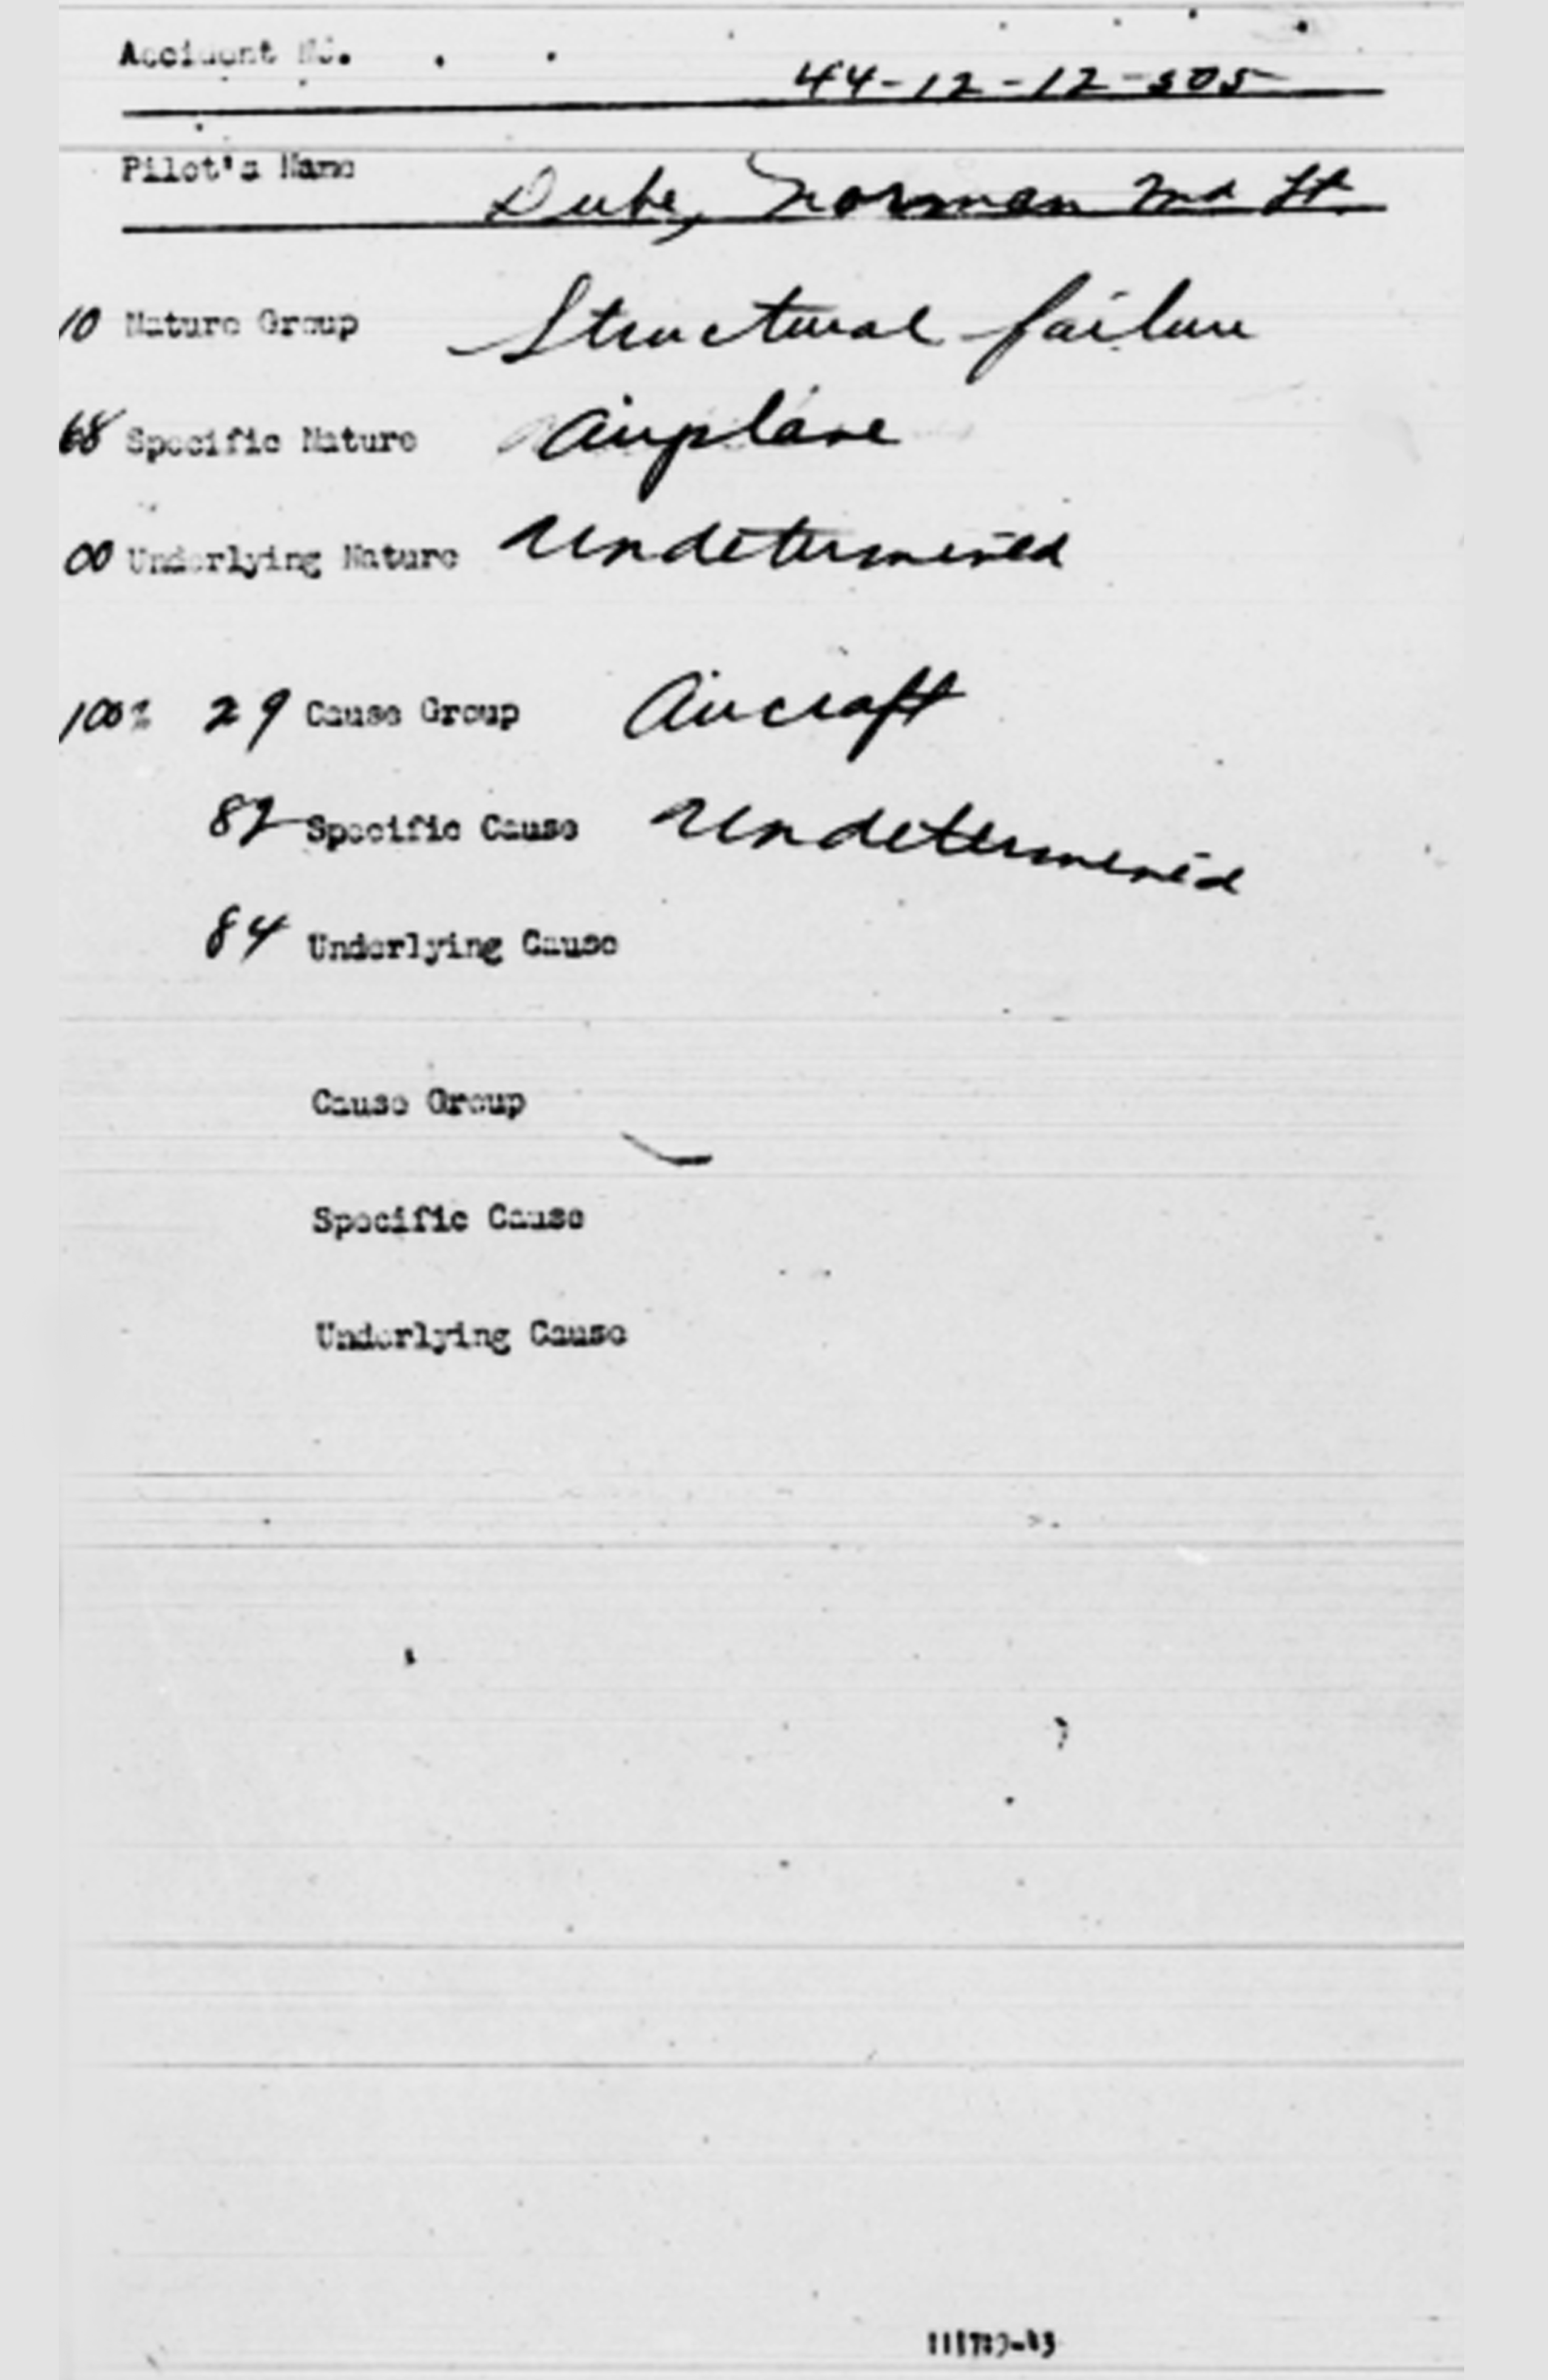 Accident No. 44-12-12-505
Pilot's Name Dube, Norman 2nd Lt.
10 Nature Group Structural failure
68 Specific Nature Airplane
00 Underlying Nature Undetermined
100% 29 Cause Group Aircraft
82 Specific Cause Undetermined
84 Underlying Cause
Cause Group
Specific Cause
Underlying Cause